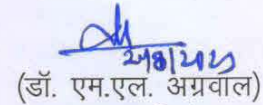 (डॉ. एम.एल. अग्रवाल)